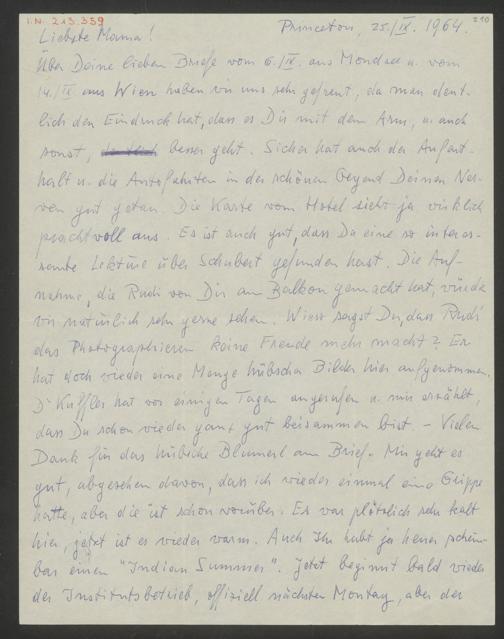 I.N. 213.359
210
Princeton, 25./IX. 1964.
Liebste Mama!
Über Deine lieben Briefe vom 6./IX. aus Mondsee u. vom
14./IX aus Wien haben wir uns sehr gefreut, da man deut-
lich den Eindruck hat, dass es Dir mit dem Arm, u. auch
sonst, besser geht. Sicher hat auch der Aufent-
halt u. die Autofahrten in der schönen Gegend Deinen Ner-
ven gut getan. Die Karte vom Hotel sieht ja wirklich
prachtvoll aus. Es ist auch gut, dass Du eine so interes-
sante Lektüre über Schubert gefunden hast. Die Auf-
nahme, die Rudi von Dir am Balkon gemacht hat, würde
wir natürlich sehr gerne sehen. Wieso sagst Du, dass Rudi
das Photographieren keine Freude mehr macht? Er
hat doch wieder eine Menge hübscher Bilder hier aufgenommen.
Dr Kuffler hat vor einigen Tagen angerufen u. mir erzählt,
dass Du schon wieder ganz gut beisammen bist. – Vielen
Dank für das hübsche Blumerl am Brief. Mir geht es
gut, abgesehen davon, dass ich wieder einmal eine Grippe
hatte, aber die ist schon vorüber. Es war plötzlich sehr kalt
hier, jetzt ist es wieder warm. Auch Ihr habt ja heuer schein-
bar einen "Indian Summer". Jetzt beginnt bald wieder
der Institutsbetrieb, offiziell nächsten Montag, aber der